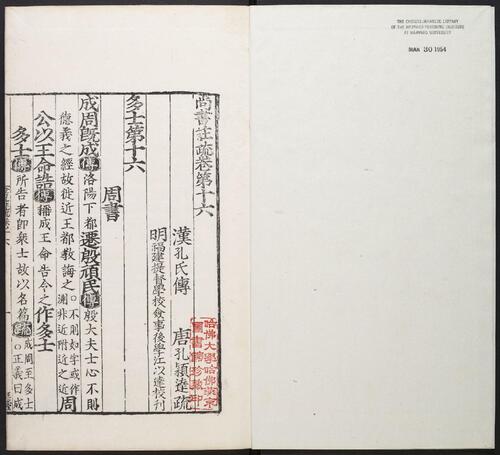 尚書註疏卷第十六
漢孔氏傳
唐孔穎達疏
明福建提督學校僉事後學江以達校刊
多士第十六
周書
成周既成傳洛陽下都遷殷頑民傳殷大夫士心不則
德義之經故徙近王都教誨之。不則如字或作測非近附近之近周
公以王命誥傳稱成王命告令之作多士
多士傳所告者即衆士故以名篇疏成周至多士。正義曰成
哈佛大學哈佛燕京
圖書館珍藏印
THE CHINESE-JAPANESE LIBRARY
OF THE HARVARD-YENCHING INSTITUTE
AT HARVARD UNIVERSITY
MAR 30 1954